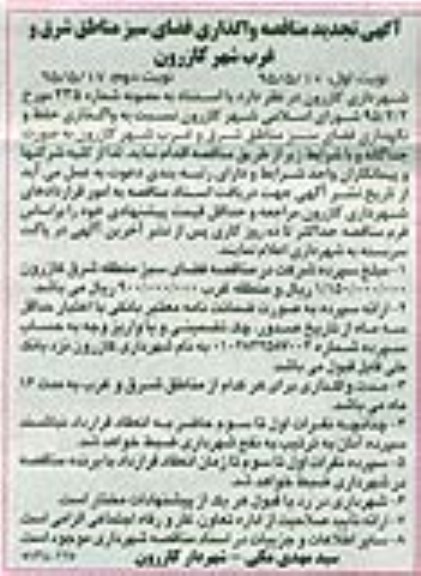 آگهی تجدید مناقصه واگذاری فضای سبز مناطق شرق و
غرب شهر کازرون
نوبت اول: ۹۵/۵/۱۰ نوبت دوم: ۹۵/۵/۱۷
شهرداری کازرون در نظر دارد با استناد به مصوبه شماره ۲۳۵ مورخ
۹۵/۲/۲ شورای اسلامی شهر کازرون نسبت به واگذاری حفظ و
نگهداری فضای سبز مناطق شرق و غرب شهر کازرون به صورت
جداگانه و با شرایط زیر از طریق مناقصه اقدام نماید. لذا از کلیه شرکتها
و پیمانکاران واجد شرایط و دارای رتبه بندی دعوت به عمل می آید
از تاریخ نشر آگهی جهت دریافت اسناد مناقصه به امور قراردادهای
شهرداری کازرون مراجعه و حداقل قیمت پیشنهادی خود را براساس
فرم مناقصه حداکثر تا ده روز کاری پس از نشر آخرین آگهی در پاکت
سربسته به شهرداری اعلام نمایند.
۱- مبلغ سپرده شرکت در مناقصه فضای سبز منطقه شرق کازرون
۱/۱۵۰/۰۰۰/۰۰۰ ریال و منطقه غرب ۹۰۰/۰۰۰/۰۰۰ ریال می باشد.
۲- ارائه سپرده به صورت ضمانت نامه معتبر بانکی با اعتبار حداقل
سه ماه از تاریخ صدور، چک تضمینی و یا واریز وجه به حساب
سپرده شماره به نام شهرداری کازرون نزد بانک
ملی قابل قبول می باشد.
۳- مدت واگذاری برای هر کدام از مناطق شرق و غرب به مدت ۱۲
ماه می باشد.
۴- چنانچه نفرات اول تا سوم حاضر به انعقاد قرارداد نباشند
سپرده آنان به ترتیب به نفع شهرداری ضبط خواهد شد.
۵- سپرده نفرات اول تا سوم تا زمان انعقاد قرارداد با برنده مناقصه
در شهرداری ضبط خواهد شد.
۶- شهرداری در رد یا قبول هر یک از پیشنهادات مختار است.
۷- ارائه تأیید صلاحیت از اداره تعاون، کار و رفاه اجتماعی الزامی است
۸- سایر اطلاعات و جزییات در اسناد مناقصه شهرداری موجود است
سید مهدی مکی - شهردار کازرون